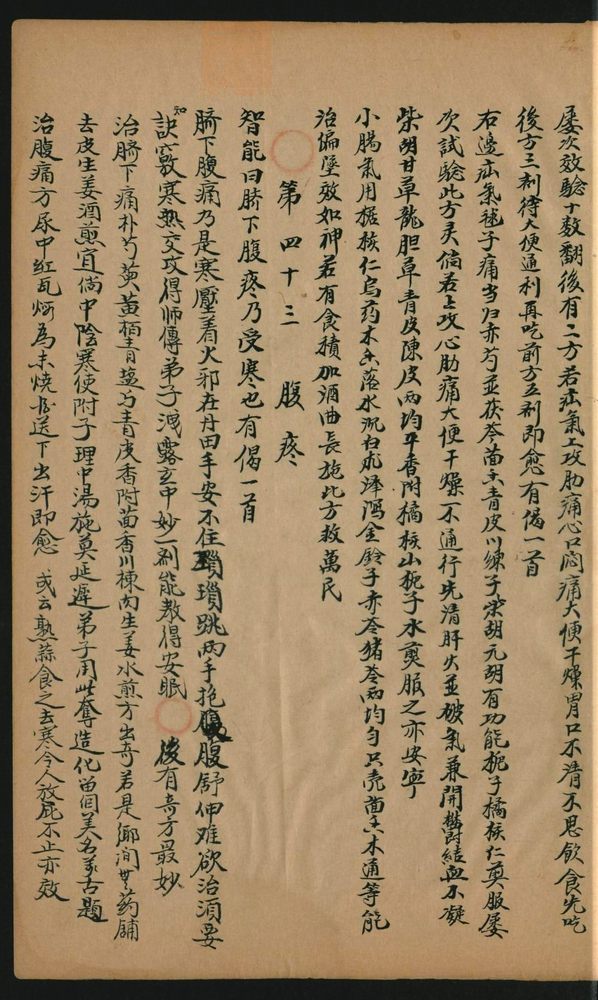 屡次效驗十数翻後有二方若疝氣上攻肋痛心口悶痛大便干燥胃口不清不思飲食先吃
後方三剂待大便通利再吃前方五剂即愈有偈一首
右邊疝氣毬子痛当归赤芍並茯苓茴香青皮川練子柴胡元胡有功能梔子橘核仁煎服屡
次試驗此方灵倘若上攻心肋痛大便干燥不通行先清肝火並破氣兼開鬱結血不凝
柴胡甘草龍胆草青皮陳皮两均平香附橘核山梔子水煎服之亦安寧
小腸氣用核仁烏药木香落水沉白术澤瀉金鈴子赤苓猪苓两均匀只壳茴香木通等能
治偏墜效如神若有食積加酒曲長施此方救萬民
第四十三 腹疼
智能曰臍下腹疼乃受寒也有偈一首
臍下腹痛乃是寒壓着火邪在丹田手安不住瑣瑣跳两手抱腹舒伸难欲治湏要
知訣竅寒熱交攻得师傳弟子洩露玄中妙一剂能教得安眠 後有奇方最妙
治臍下痛朴芍萸黄栢青塩与青皮香附茴香川棟肉生姜水煎方出奇若是鄉间無药舖
去皮生姜酒煎宜倘中陰寒使附子理中湯施莫延遲弟子用此奪造化留個美名万古題
治腹痛方尿中紅瓦煅為末燒酒送下出汗即愈 或云熟蒜食之去寒令人放屁不止亦效